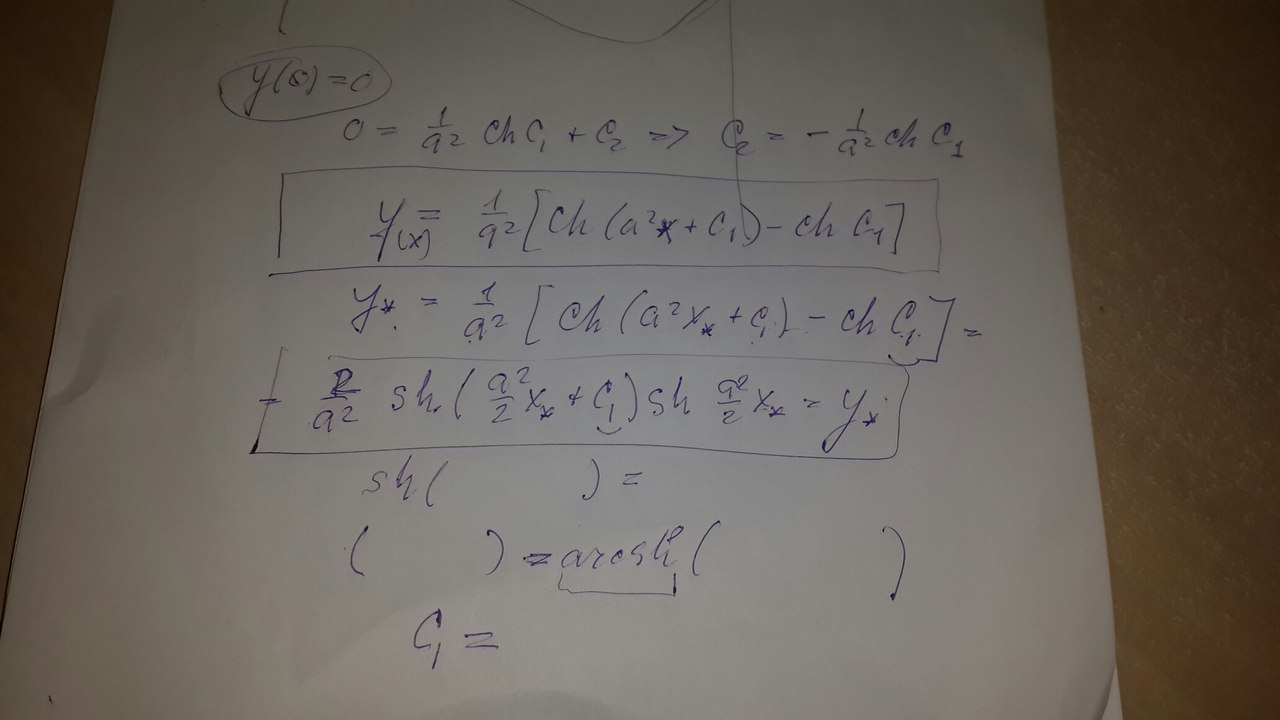 y(0)=0
0 = 1/a² ch C₁ + C₂ => C₂ = - 1/a² ch C₁
y(x) = 1/a² [ch (a²x + C₁) - ch C₁]
y* = 1/a² [ch (a²x* + C₁) - ch C₁] =
= 2/a² sh (a²/2 x* + C₁) sh a²/2 x* = y*
sh ( ) =
( ) = arcsh ( )
C₁ =